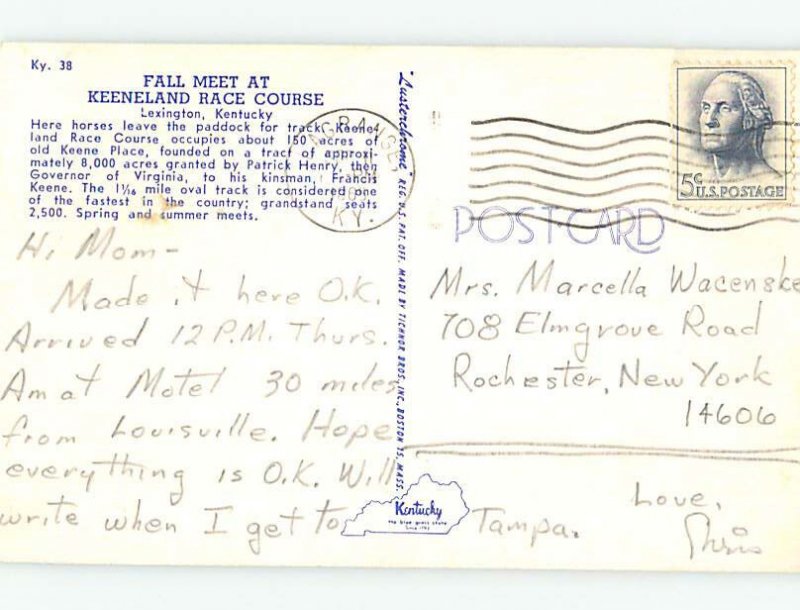 Ky. 38
FALL MEET AT
KEENELAND RACE COURSE
Lexington, Kentucky
Here horses leave the paddock for track. Keene-
land Race Course occupies about 150 acres of
old Keene Place, founded on a tract of approxi-
mately 8,000 acres granted by Patrick Henry, then
Governor of Virginia, to his kinsman, Francis
Keene. The 1 1/16 mile oval track is considered one
of the fastest in the country; grandstand seats
2,500. Spring and summer meets.
Hi Mom-
Made it here O.K.
Arrived 12 P.M. Thurs.
Am at Motel 30 miles
from Louisville. Hope
everything is O.K. Will
write when I get to Tampa.
"Lusterchrome" REG. U.S. PAT. OFF. MADE BY TICHNOR BROS., INC., BOSTON 15, MASS.
Kentucky
the blue grass state
LAGRANGE
KY.
5¢ U.S. POSTAGE
POST CARD
Mrs. Marcella Wacenske
708 Elmgrove Road
Rochester, New York
14606
Love,